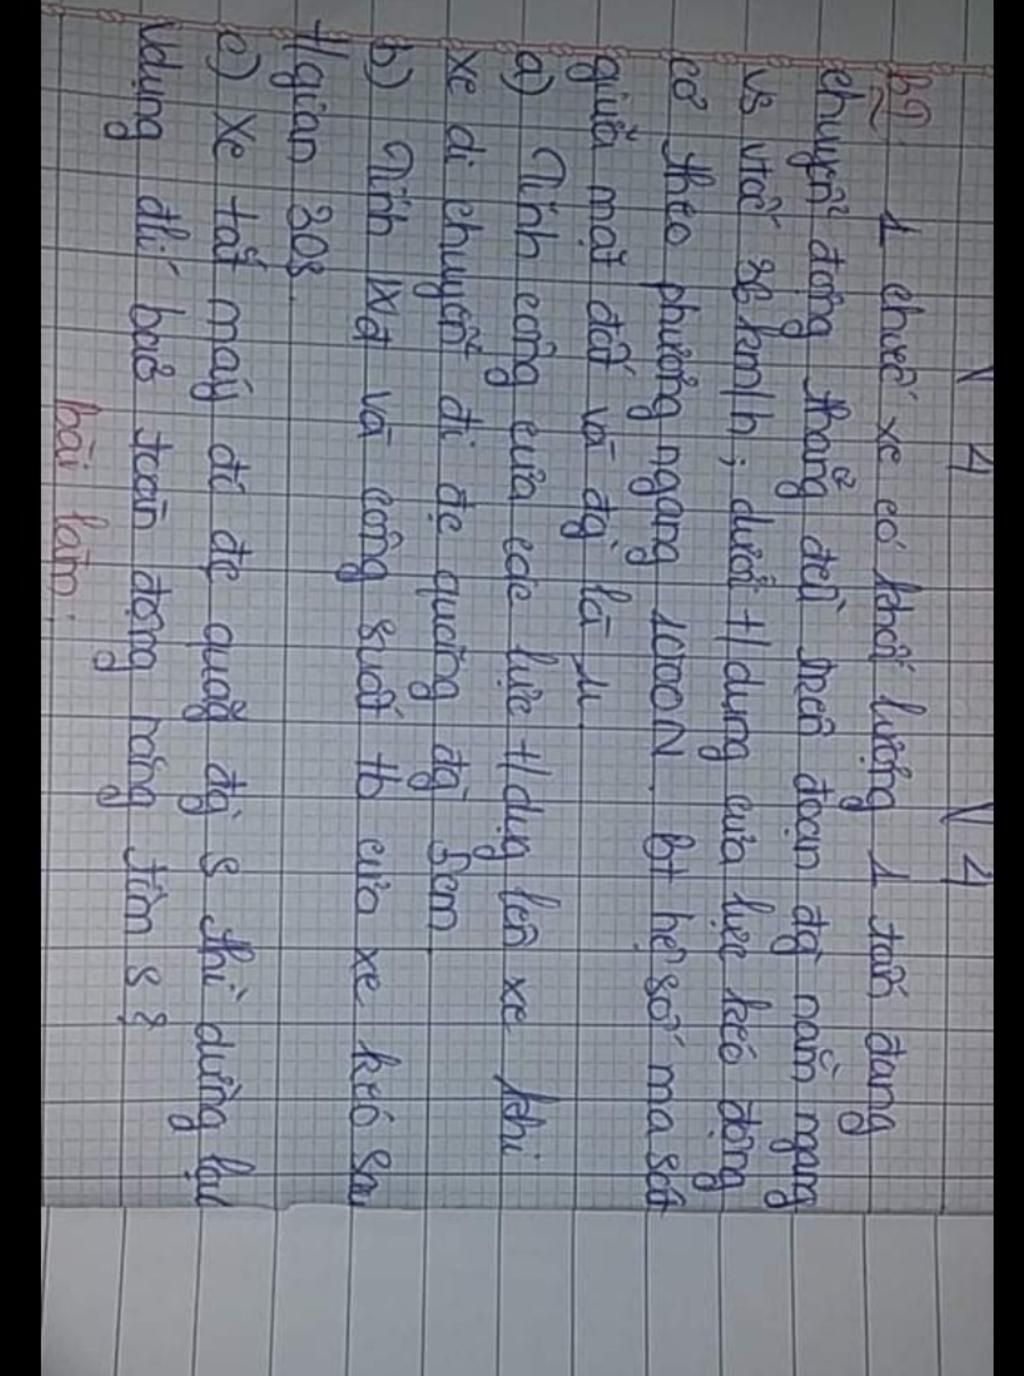 b9 1 chiếc xe có khối lượng 1 tấn đang
chuyển động thẳng đều trên đoạn đg nằm ngang
vs vtốc 36km/h; dưới t/dụng của lực kéo động
cơ theo phương ngang 1000N. bt hệ số ma sát
giữa mặt đất và đg là μ.
a) Tính công của các lực t/dụng lên xe khi
xe di chuyển đi đc quãng đg 5cm.
b) Tính và công suất tb của xe kéo sau
t/gian 30s.
c) Xe tắt máy đi đc quãg đg s thì dừng lại
vdụng đlí bảo toàn động năng tìm s?
bài làm: